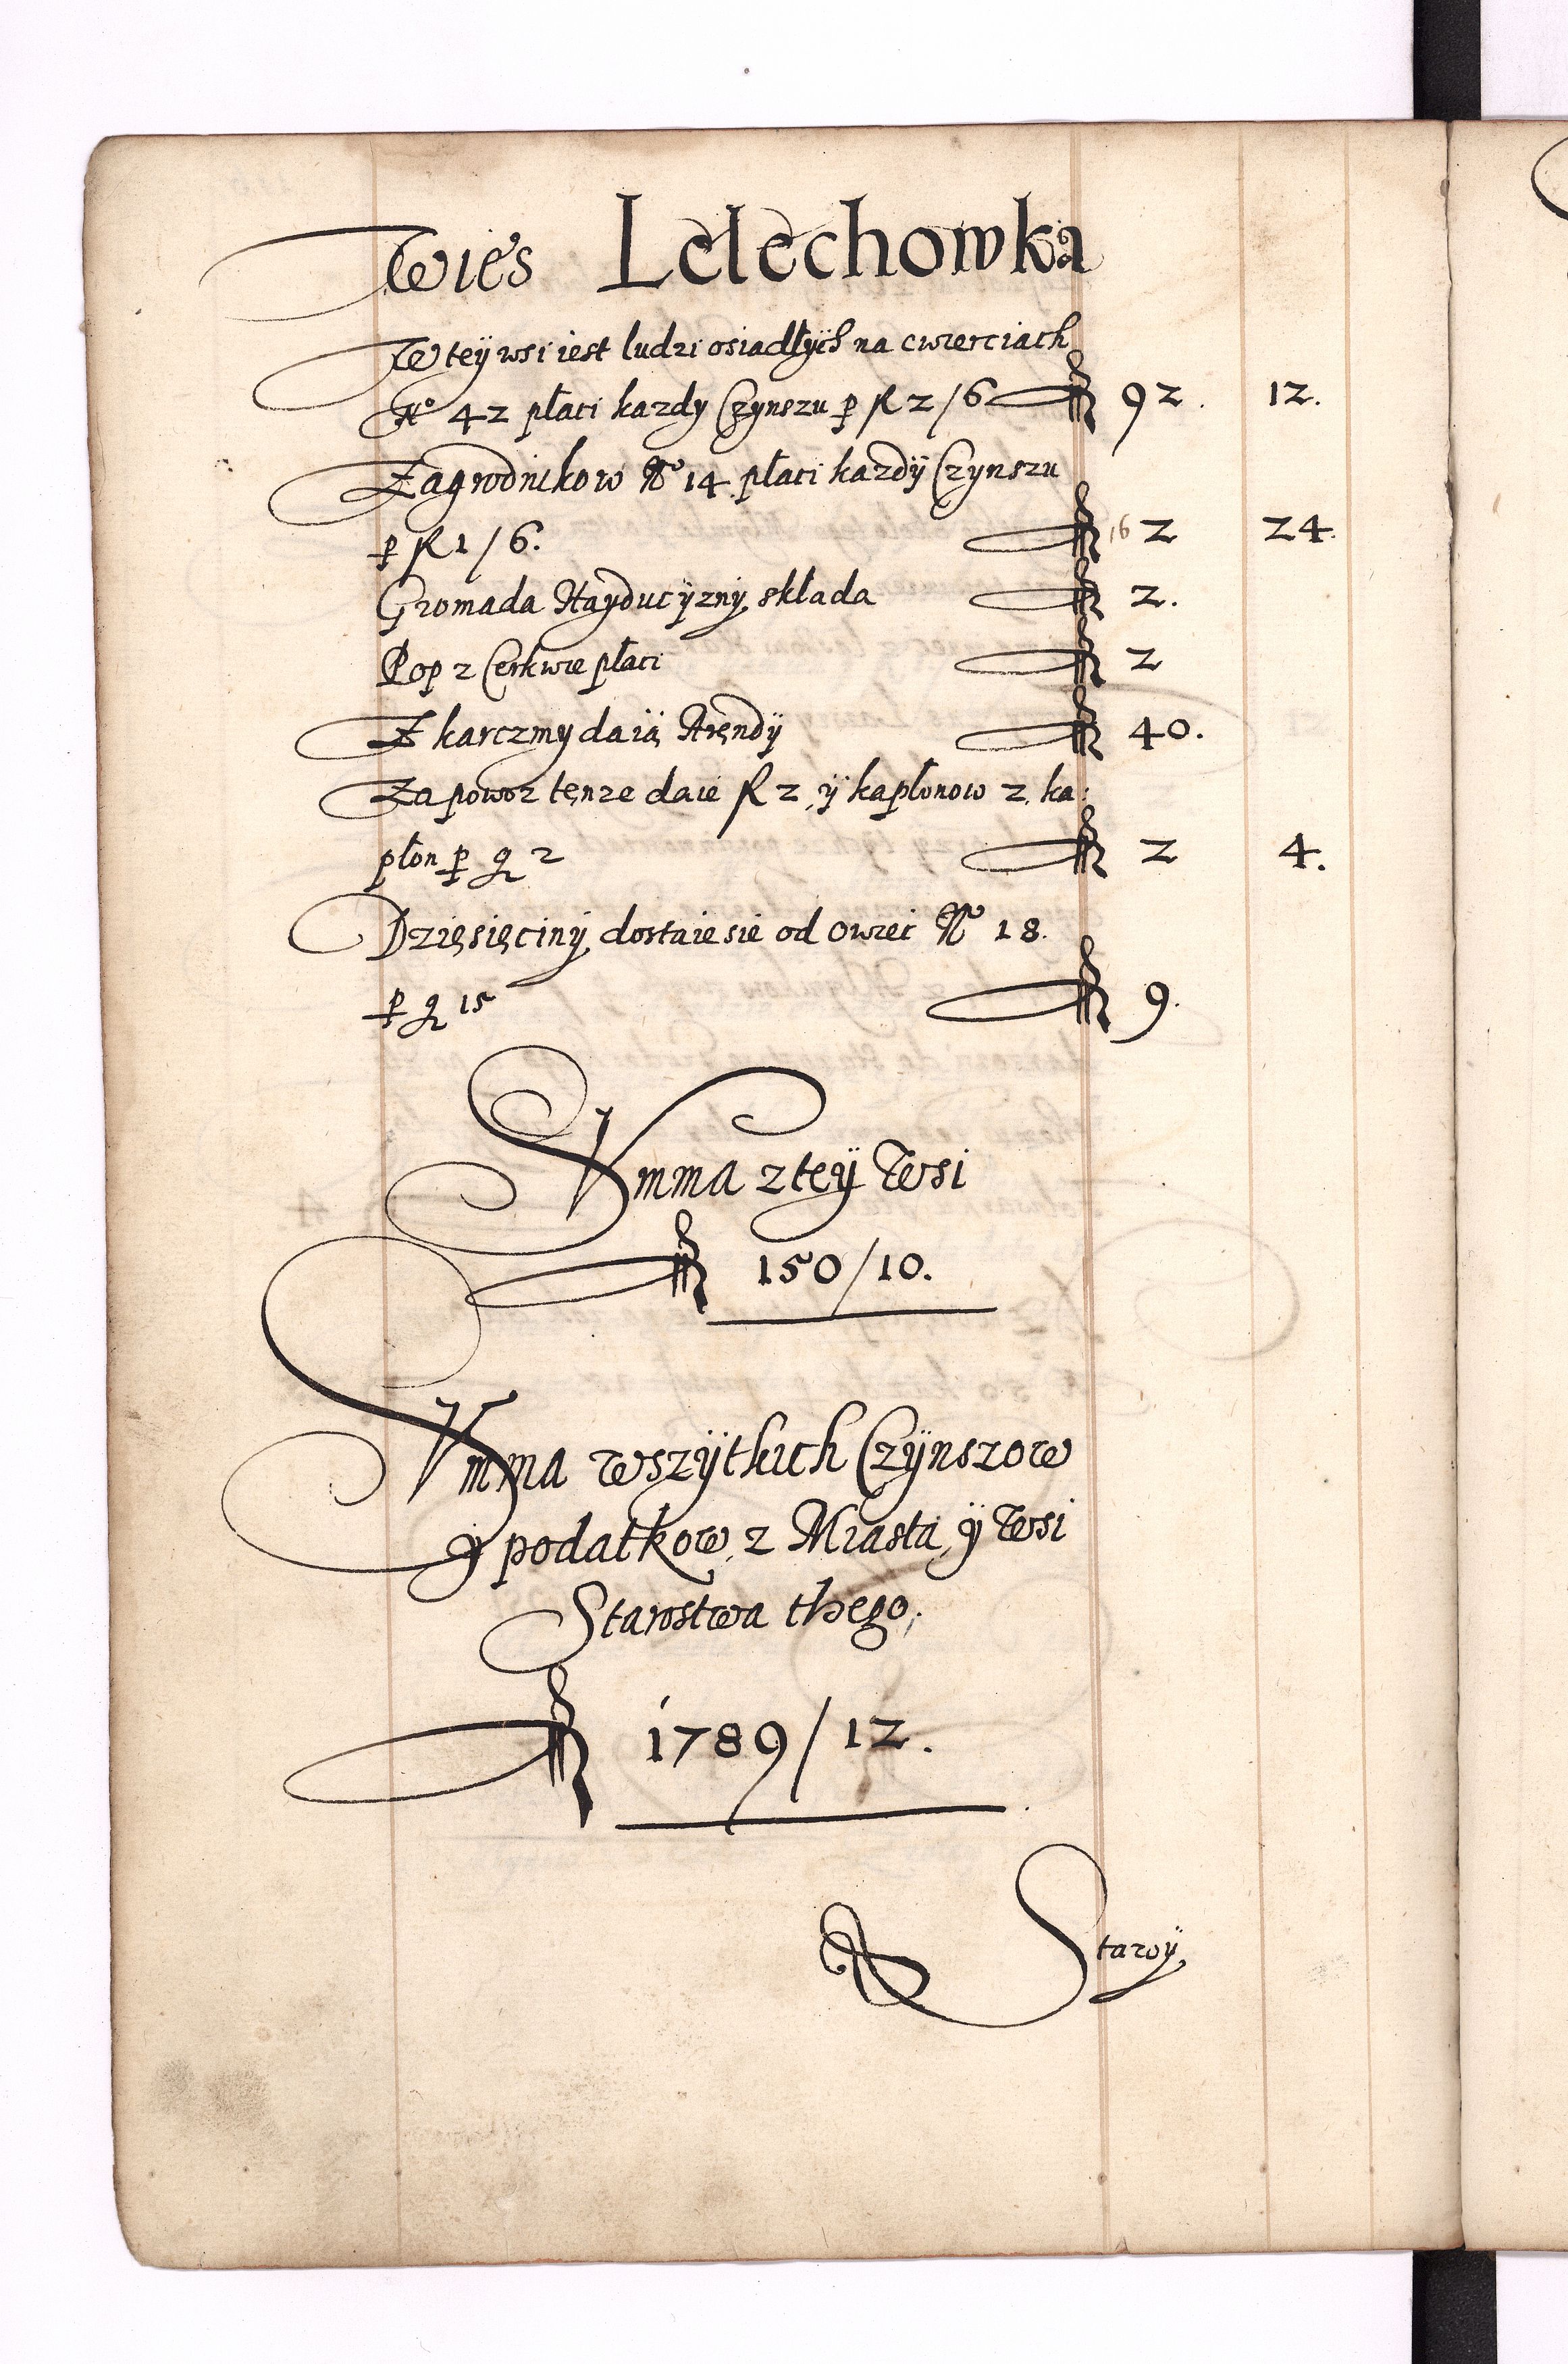 Wies Lelechowka
W teÿ wsi iest ludzi osiadłÿch na cwierciach
No 42 płaci kazdy Czynszu p fl 2/6 fl 92. 12.
Zagrodnikow No 14 płaci kazdÿ Czynszu
p fl 1/6. fl 16 2 24.
Gromada Hayducÿznÿ składa fl 2.
Pop z Cerkwie płaci fl 2
Z karczmy daią Arendÿ fl 40.
Za powoz tenze daie fl 2, ÿ kapłonow 2, ka:
płon p g 2 fl 2 4.
Dzięsięcinÿ dostaie sie od owiec No 18.
p g 15 fl 9.
Summa z teÿ Wsi
fl 150/10.
Summa wszÿtkich Czÿnszow
ÿ podatkow, z Miasta, ÿ Wsi
Starostwa thego,
fl 1789/12.
Starÿ